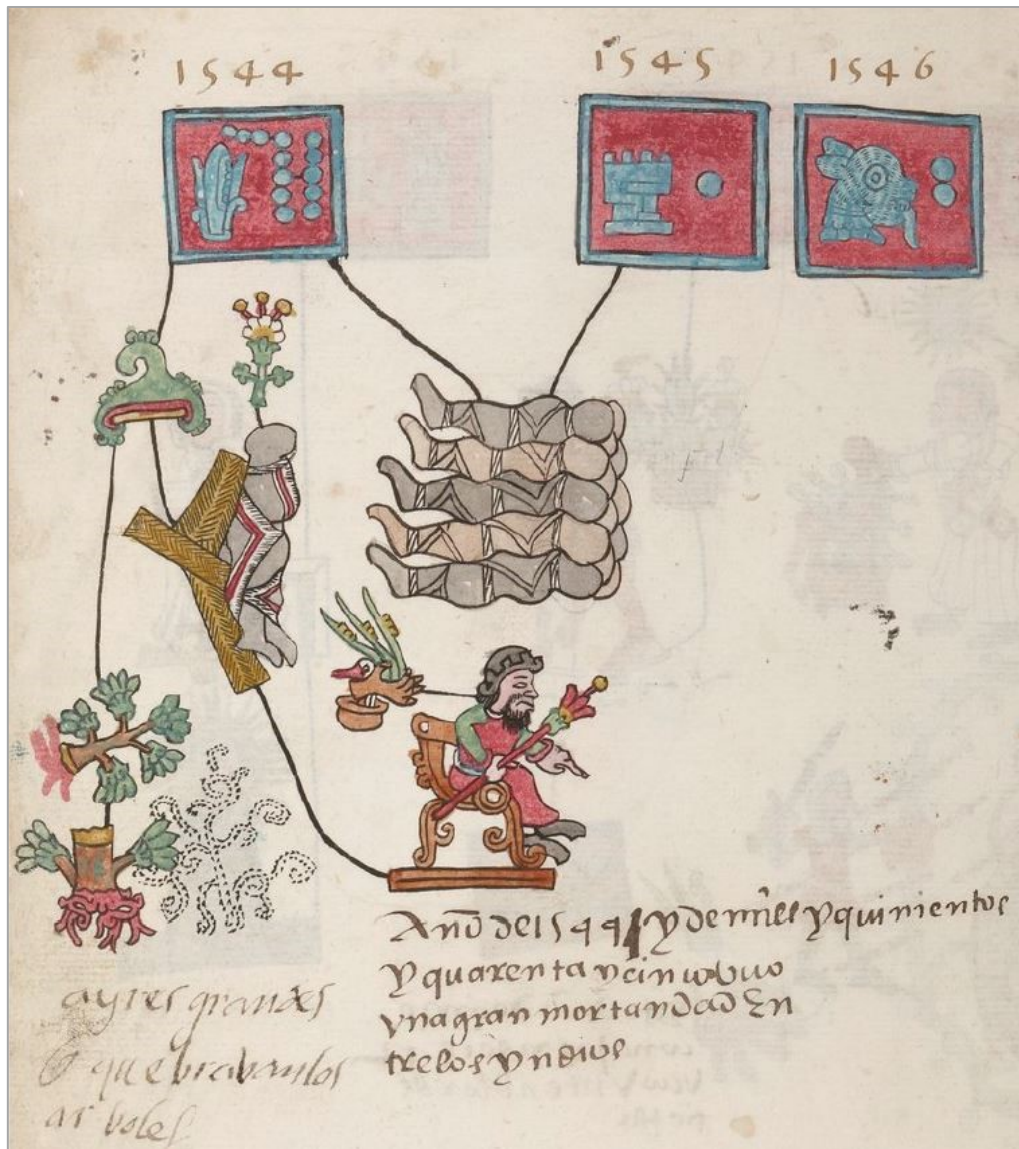 1544
1545
1546
Año de 1544 / y de mill y quinientos
y quarenta y cinco buo
vna gran mortandad En
tre los yndios
ayres grandes
que brabanlos
arboles